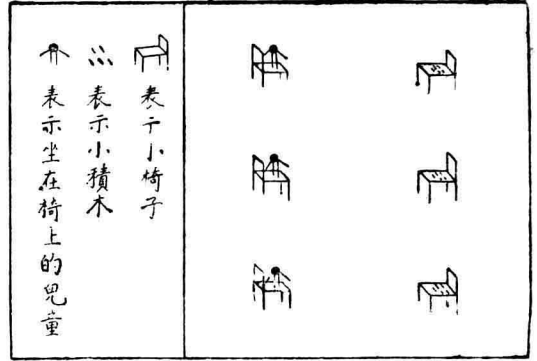 表示小椅子
表示小積木
表示坐在椅上的兒童